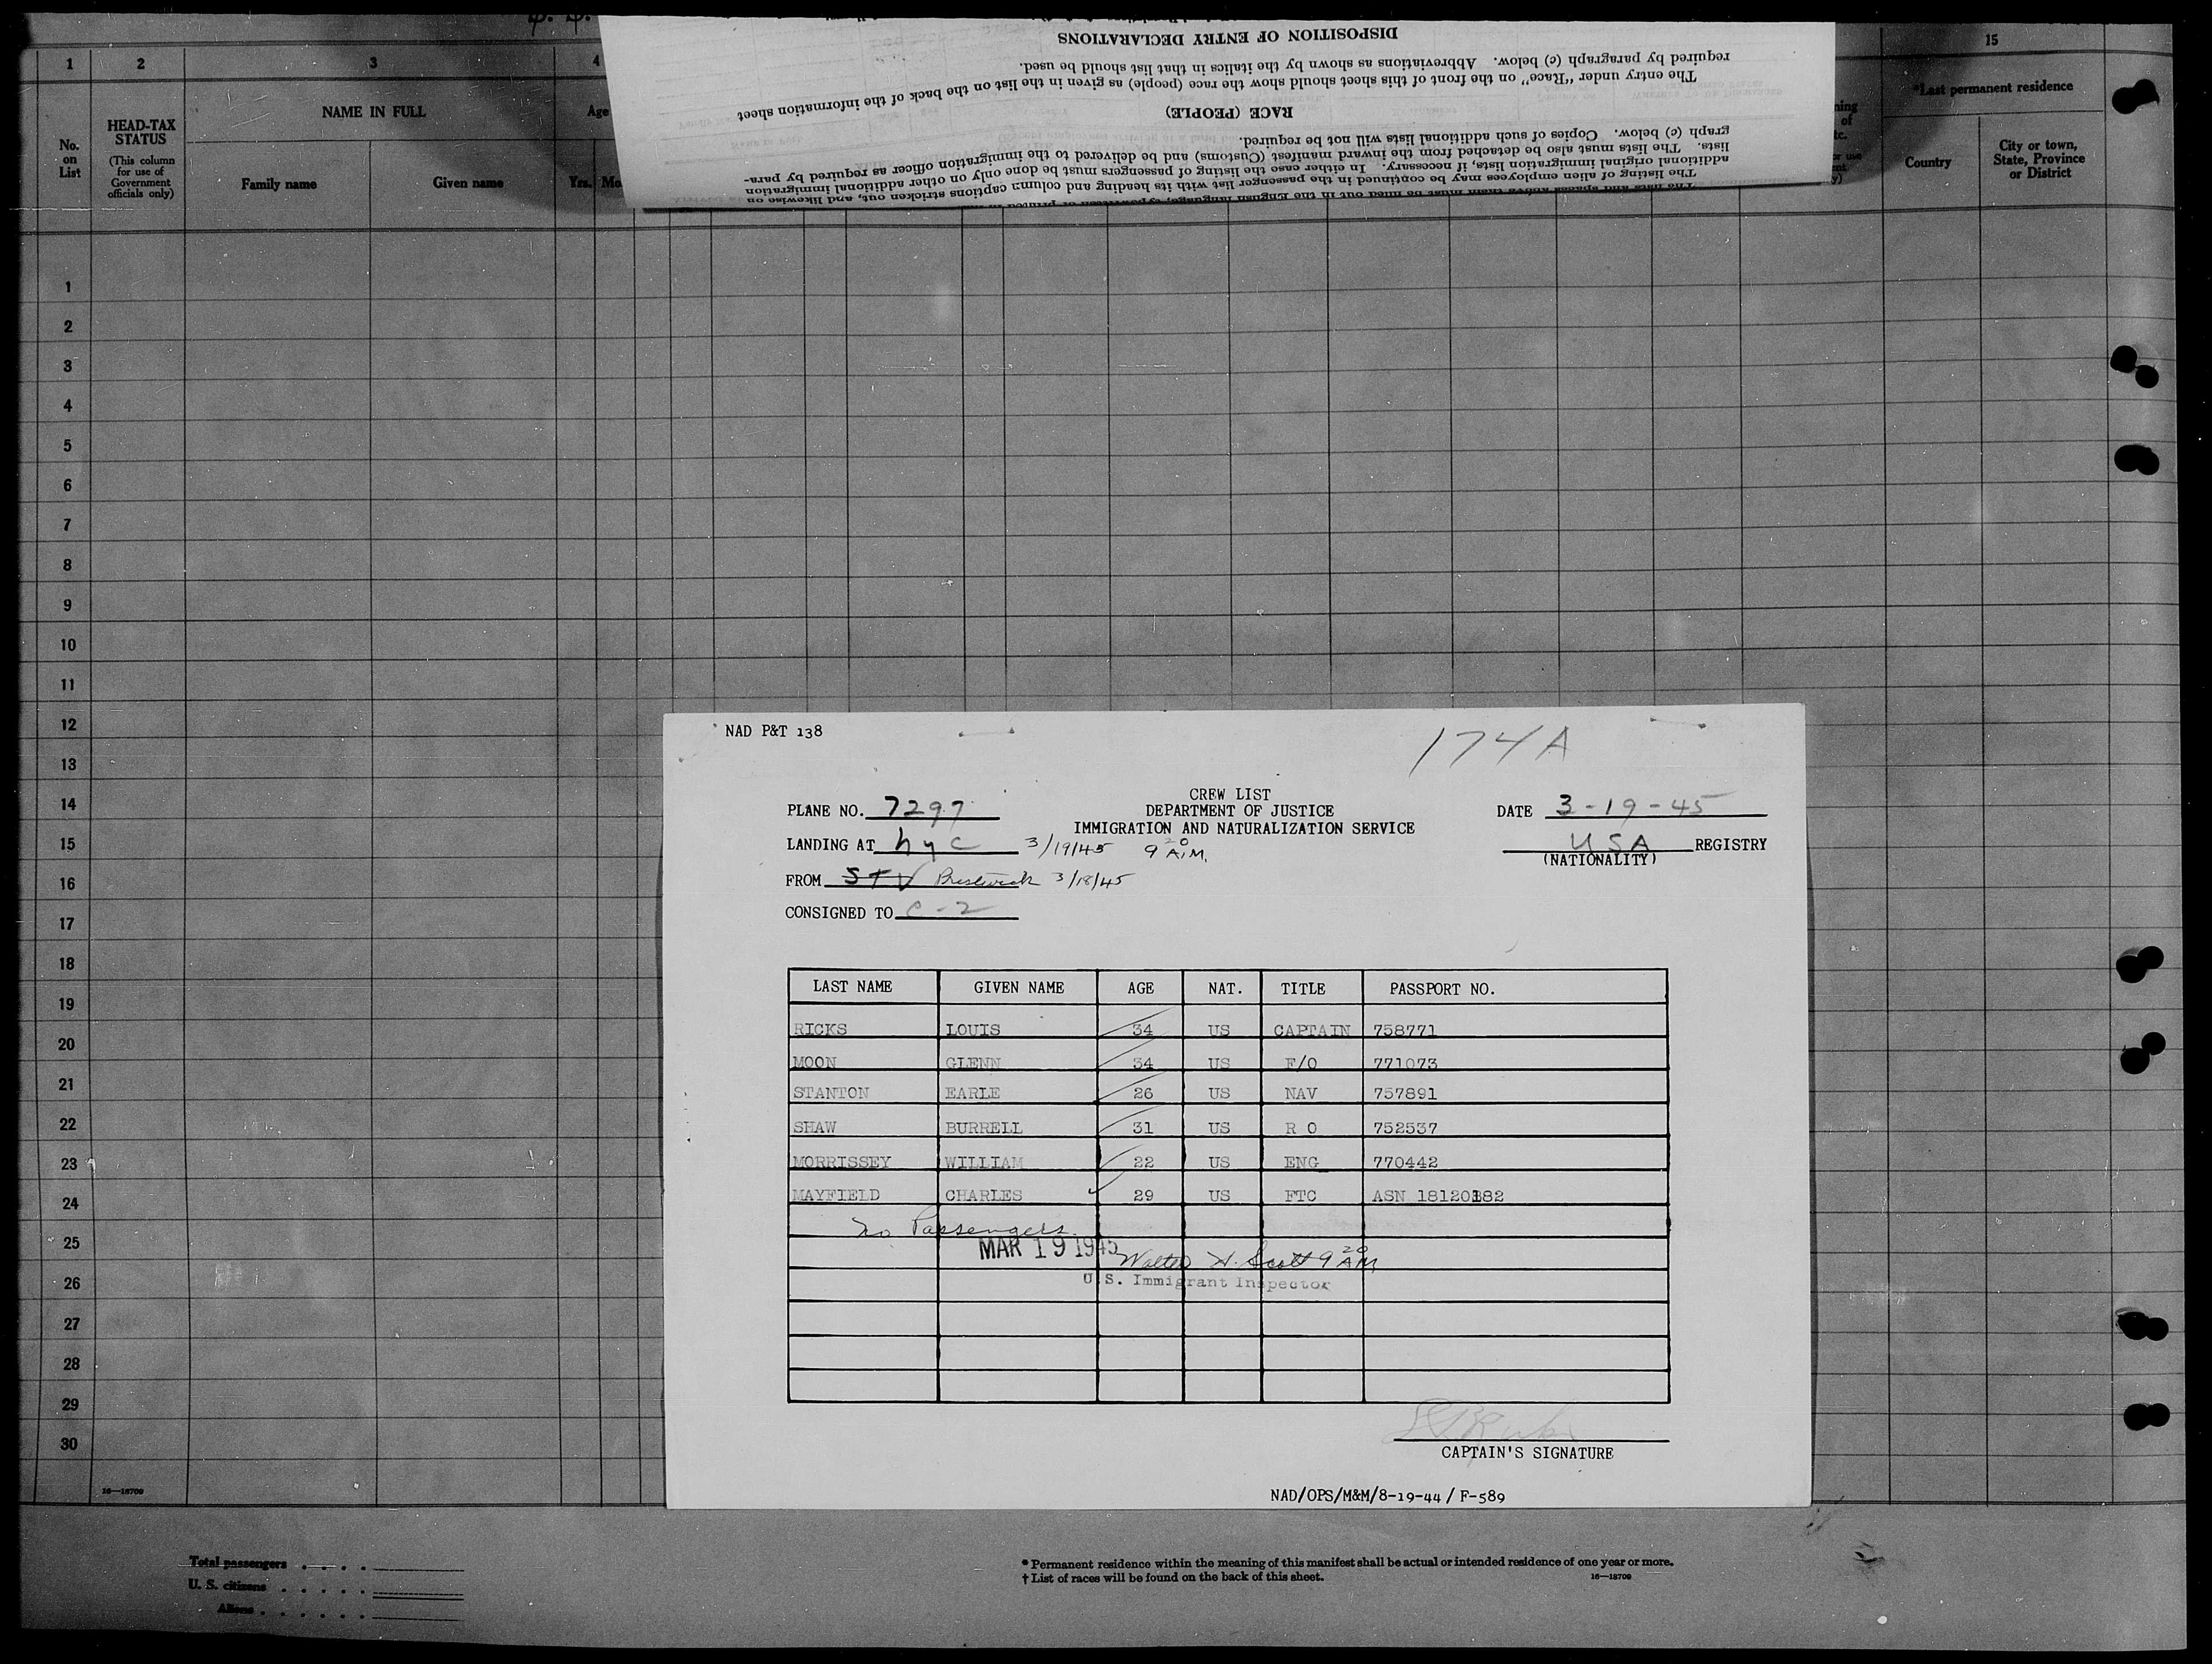 1 2 3 4 15
No. on List
HEAD-TAX STATUS
(This column for use of Government officials only)
NAME IN FULL
Family name Given name
Age
Yrs.
*Last permanent residence
Country
City or town, State, Province or District
DISPOSITION OF ENTRY DECLARATIONS
required by paragraph (c) below. Abbreviations as shown by the italics in that list should be used.
The entry under "Race" on the front of this sheet should show the race (people) as given in the list on the back of the information sheet
RACE (PEOPLE)
graph (c) below. Copies of such additional lists will not be required.
lists. The lists must also be detached from the inward manifest (Customs) and be delivered to the immigration officer as required by para-
additional original immigration lists, if necessary. In either case the listing of passengers must be done only on other additional immigration
The listing of alien employees may be continued in the passenger list with its heading and column captions stricken out, and likewise on
1
2
3
4
5
6
7
8
9
10
11
12
13
14
15
16
17
18
19
20
21
22
23
24
25
26
27
28
29
30
16—18709
NAD P&T 138
174A
CREW LIST
DEPARTMENT OF JUSTICE
IMMIGRATION AND NATURALIZATION SERVICE
PLANE NO. 7297
DATE 3-19-45
LANDING AT nyc 3/19/45 9 20 A.M.
USA REGISTRY
(NATIONALITY)
FROM STV Prestwick 3/18/45
CONSIGNED TO C-2
LAST NAME GIVEN NAME AGE NAT. TITLE PASSPORT NO.
RICKS LOUIS 34 US CAPTAIN 758771
MOON GLENN 34 US F/O 771073
STANTON EARLE 26 US NAV 757891
SHAW BURRELL 31 US R O 752537
MORRISSEY WILLIAM 22 US ENG 770442
MAYFIELD CHARLES 29 US FTC ASN
No Passengers
MAR 19 1945 Walter H. Scott 9 20 AM
U.S. Immigrant Inspector
CAPTAIN'S SIGNATURE
NAD/OPS/M&M/8-19-44/ F-589
Total passengers
U. S. citizens
Aliens
* Permanent residence within the meaning of this manifest shall be actual or intended residence of one year or more.
† List of races will be found on the back of this sheet.
16—18709